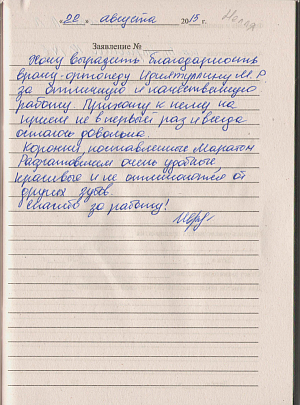 "20" августа 2015 г.
Заявление №
Хочу выразить благодарность
врачу-ортопеду М.Р
за отличную и качественную
работу. Прихожу к нему на
прием не в первый раз и всегда
осталась довольна.
Коронки, поставленные Маратом
очень удобные
красивые и не отличаются от
других зубов.
Спасибо за работу!